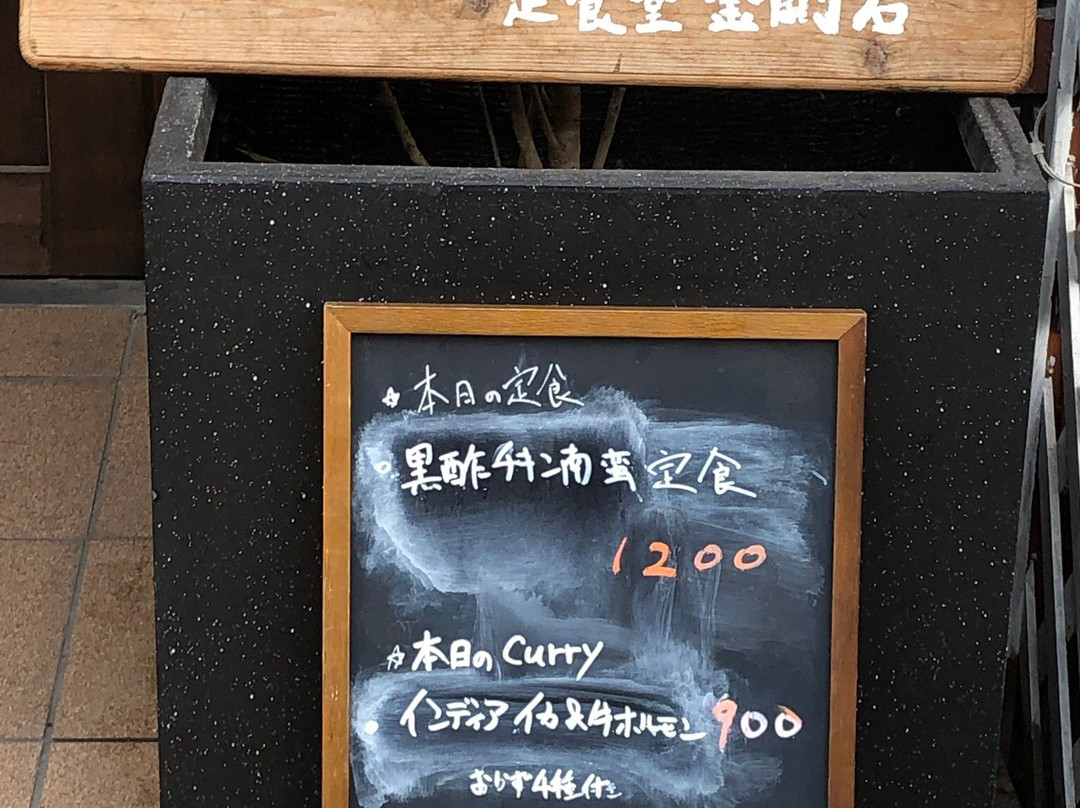 定食堂 金剛石
☆本日の定食
○黒酢チキン南蛮定食
1200
☆本日のCurry
●インディアイカ&牛ホルモン 900
おかず4種付き